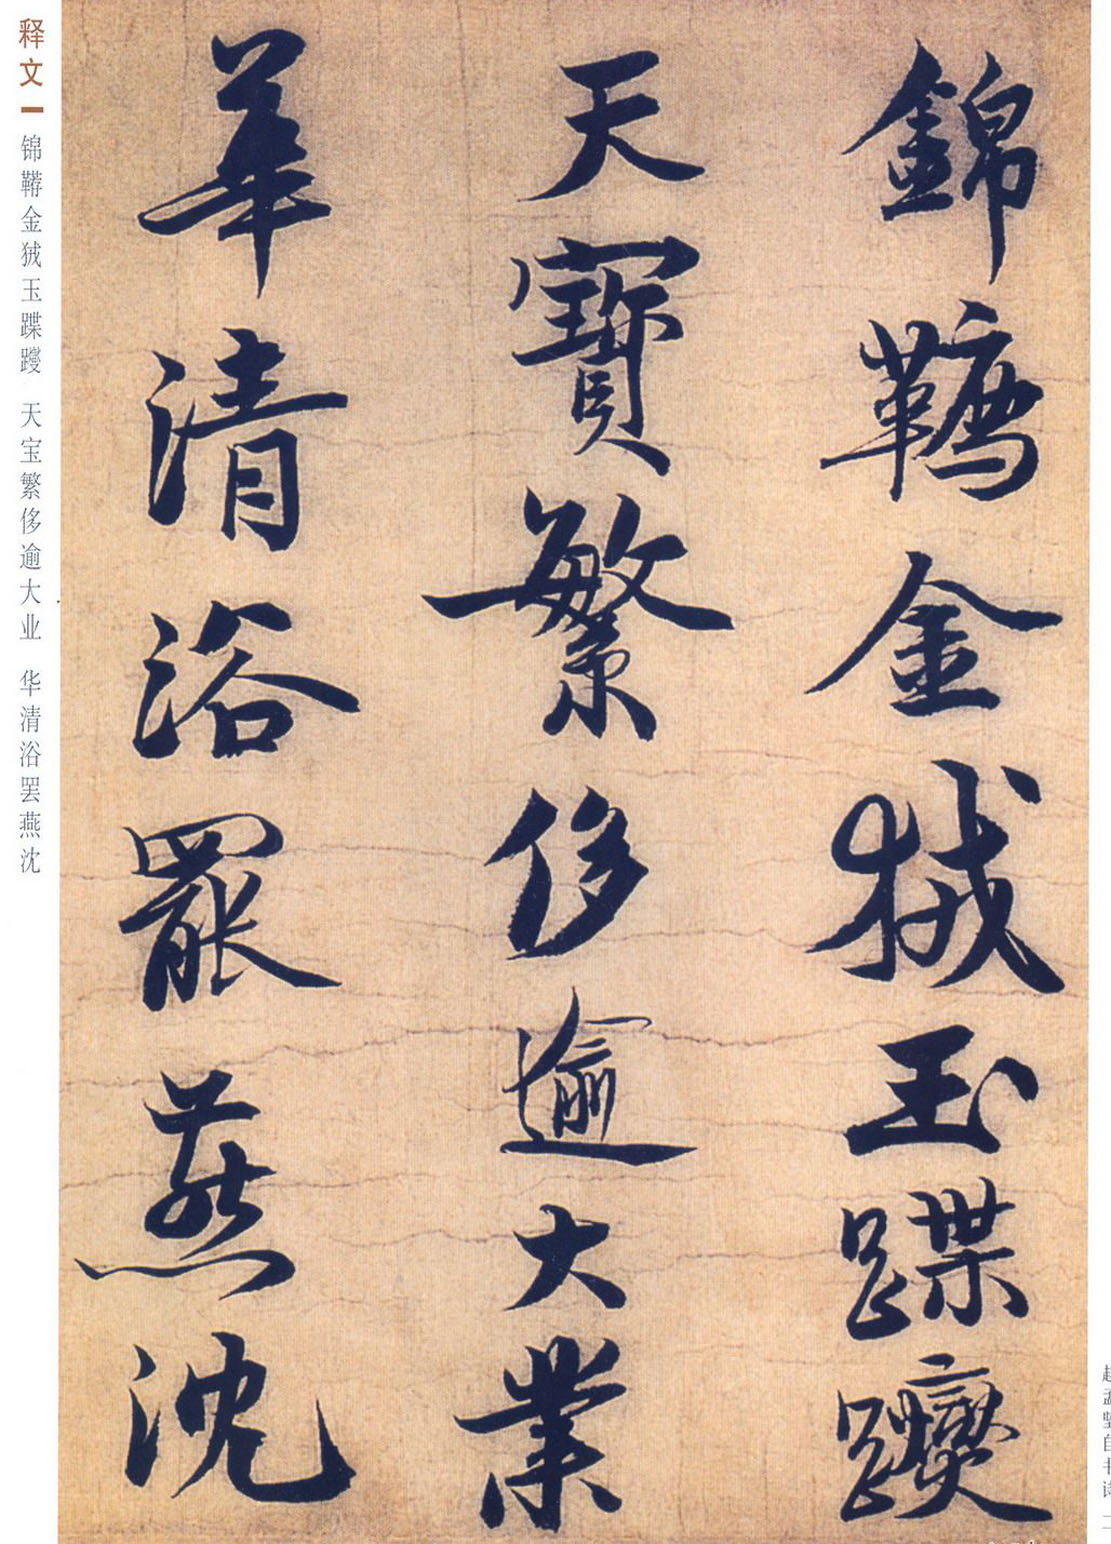 赵孟坚自书诗 二
錦韉金狨玉蹀躞
天寶繁侈逾大業
華清浴罷燕沈
释文 锦鞯金狨玉蹀躞 天宝繁侈逾大业 华清浴罢燕沈